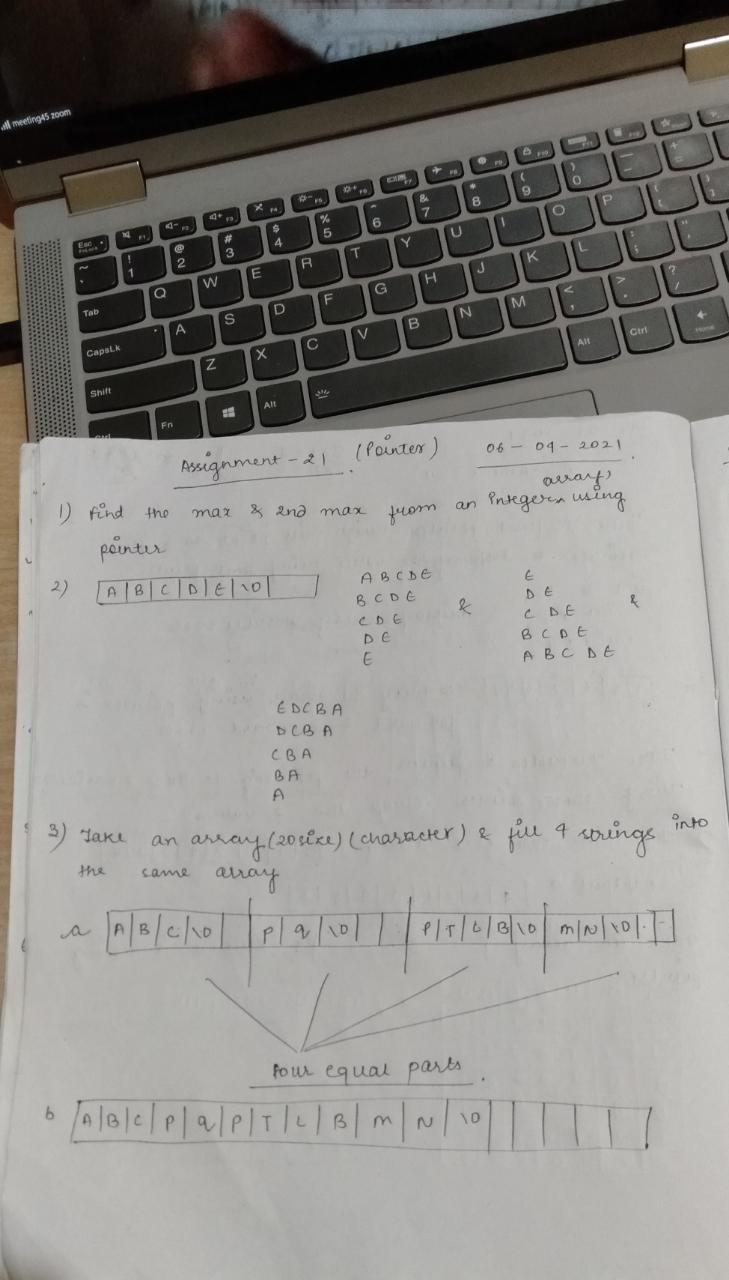 meeting45 zoom
Esc F1 F2 F3 F4 F5 F6 F7 F8 F9 F10 F11 F12
~ ! 1 @ 2 # 3 $ 4 % 5 ^ 6 & 7 * 8 ( 9 ) 0 _ - + =
Tab Q W E R T Y U I O P { [ } ]
CapsLk A S D F G H J K L : ; " '
Shift Z X C V B N M < , > . ? /
Ctrl Fn Alt Alt Ctrl Home
Assignment - 21 (Pointer) 06 - 04 - 2021
1) Find the max & 2nd max from an integer arrays using
pointer
2) A B C D E \0
A B C D E
B C D E
C D E
D E
E
&
E
D E
C D E
B C D E
A B C D E
&
E D C B A
D C B A
C B A
B A
A
3) Take an array (20 size) (character) & fill 4 strings into
the same array
a A B C \0 P Q \0 P T L B \0 M N \0 . -
Four equal parts.
b A B C P Q P T L B M N \0